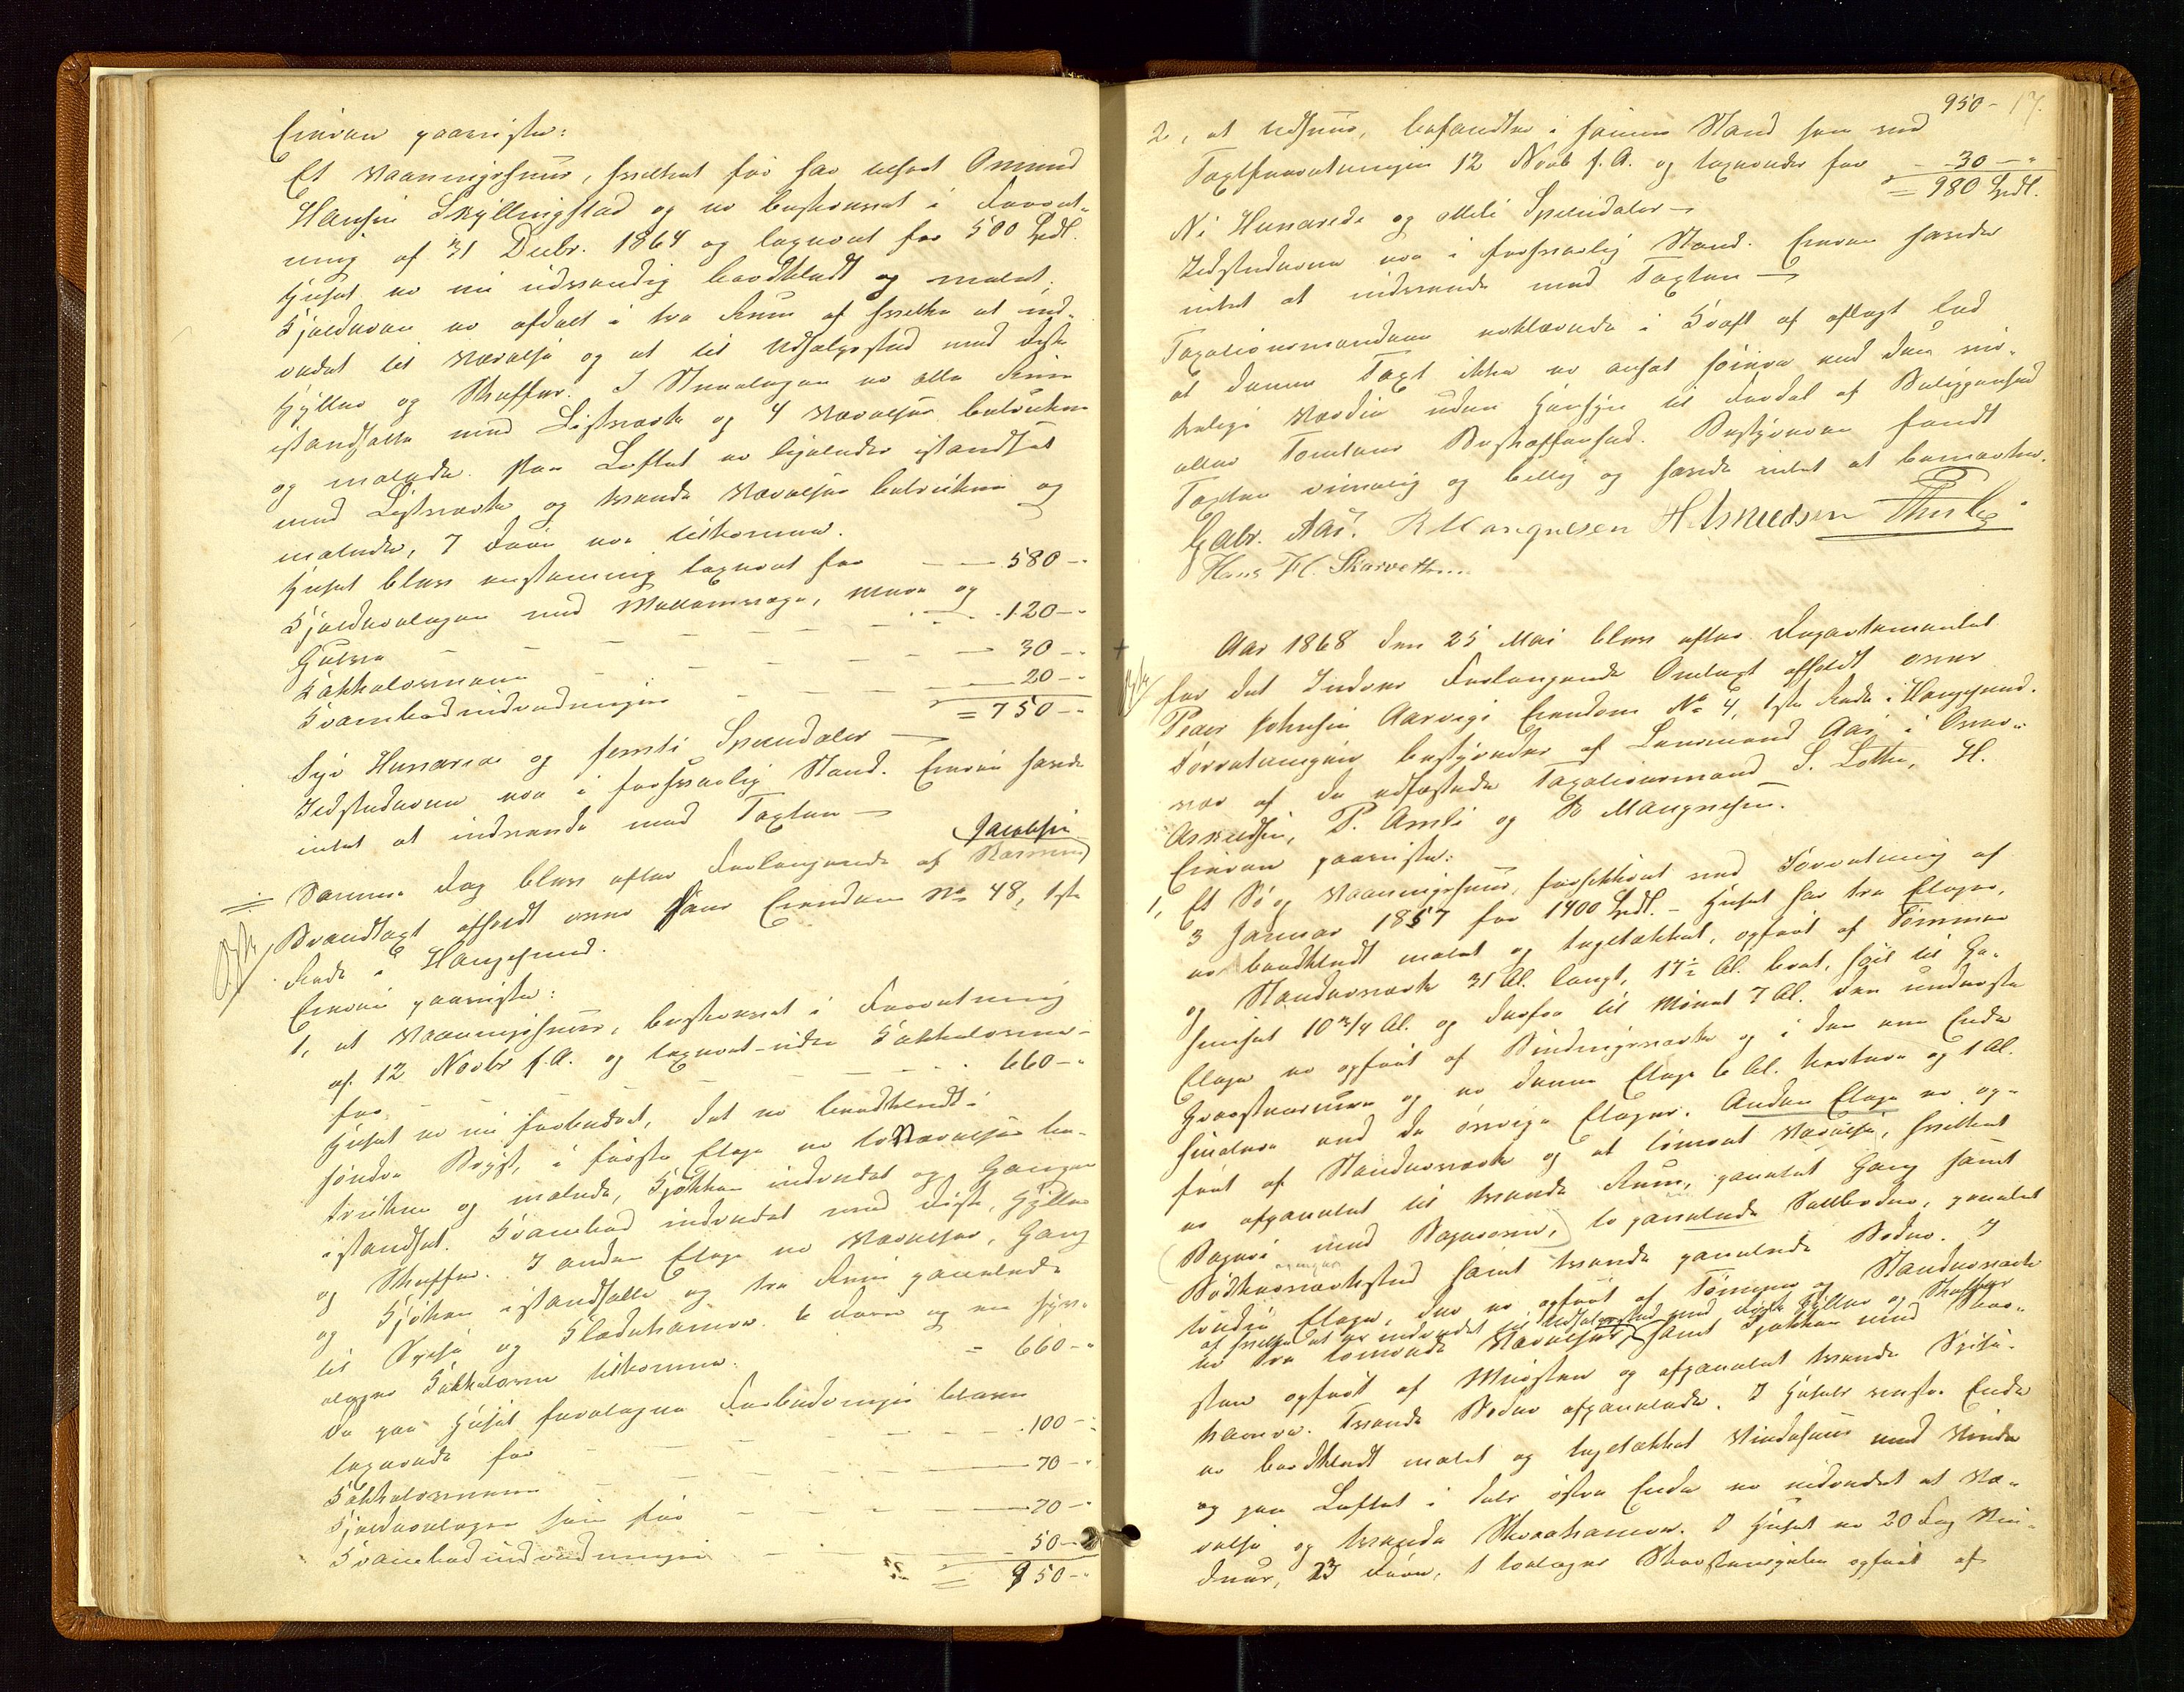 Eieren paaviste:
Et Vaaningshuus, hvilket før har tilhørt Omund
Hansen Skyllingstad og er beskrevet i Forret-
ning af 31 Decbr. 1864 og taxeret for 500 Spdl.
Huset er nu udvendig bordklædt og malet;
Kjelderen er afdelt i tre Rum af hvilke et ind-
redet til Værelse og et til Udsalgssted med Disk
Hyller og Skuffer. I Stueetagen er alle Rum
istandsatte med Listværk og 4 Værelser betrukne
og malede. Paa Loftet er ligeledes istandsat
med Listværk og tvende Værelser betrukne og
malede, 7 Døre ere tilkomne.
Huset blev enstemmig taxeret for — — 580 -"
Kjelderetagen med Mellemvægge, Mure og
Gulve — — — — — 120 -"
Kakkelovnene — — — — 30 -"
Krambodindredningen — — — 20 -"
= 750 -"
Syv Hundrede og femti Speciedaler —
Ildstederne ere i forsvarlig Stand. Eieren havde
intet at indvende mod Taxten —
÷ Samme Dag blev efter Forlangende af Rasmus Jacobsen
Brandtaxt afholdt over hans Eiendom No 48, 1ste
Rode i Haugesund.
Eieren paaviste:
1, et Vaaningshuus, beskrevet i Forretning
af 12 Novbr f.A. og taxeret uden Kakkelovne
for — — — — 660 -"
Huset er nu forbedret, det er bordklædt i
søndre Bryst, i første Etage er to Værelser be-
trukne og malede, Kjøkken indredet og Gangen
istandsat. Krambod indredet med Disk, Hyller
og Skuffer. I anden Etage er Værelser, Gang
og Kjøken istandsatte og tre Rum panelede
til Spise og Klædekamre. 6 Døre og en
etages Kakkelovn tilkomne. = 660 -"
De paa Huset foretagne Forbedringer bleve
taxerede for — — — — 100 -"
Kakkelovnene — — — 70 -"
Kjelderetagen som før — — — 70 -"
Krambodindredningen — — — 50 -"
= 950 -"
950 - 17.
2, et Udhuus, befandtes i samme Stand som ved
Taxtforretningen 12 Novb f.A. og taxeredes for — 30 — "
= 980 Spdl.
Ni Hundrede og otteti Speciedaler —
Ildstederne ere i forsvarlig Stand. Eieren havde
intet at indvende mod Taxten —
Taxationsmændene erklærede i Kraft af aflagt Eed
at denne Taxt ikke er ansat høiere end den vir-
kelige Værdie uden Hensyn til Fordel af Beliggenhed
eller Tomtens Beskaffenhed. Bestyreren fandt
Taxten rimelig og billig og havde intet at bemærke.
Gabr. Aas. R Mangnesen H. Asmedsen
Hans H. Skarveth
Aar 1868 den 25 Mai blev efter Departementet
for det Indres Forlangende Omtaxt afholdt over
Peder Johnsen Aarvigs Eiendom No 4, 1ste Rode i Haugesund.
Forretningen bestyredes af Lensmand Aas i Over-
vær af de edfæstede Taxationsmænd S. Lothe, H.
Asmedsen, P. Amli og R Mangnesen.
Eieren paaviste:
1, Et Sø og Vaaningshuus, forsikkret ved Forretning af
3 Januar 1857 for 1400 Spdl. - Huset har tre Etager,
er bordklædt malet og tagtækket, opført af Tømmer
og Stænderværk 31 Al. langt, 17½ Al. bret, høit til Ge-
simset 10 3/4 Al. og derfra til Mønet 7 Al. Den underste
Etage er opført af Bindingsværk og i den ene Ende
Graasteensmuur og er denne Etage 6 Al. kortere og 1 Al.
smalere end de øvrige Etager. Anden Etage er op-
ført af Stænderværk og et tømret Værelse, hvilket
er afpanelet til tvende Rum, panelet Gang samt
(Bageri med Bagerovn,) to panelede Saltboder, panelet
Bødkerværksted samt tvende panelede Boder. I
tredie Etage, der er opført af Tømmer og Stænderværk
af hvilke et er indredet til Udsalgssted med Disk Hyller og Skuffer
er tre tømrede Værelser, samt Kjøkken med Skor-
sten opført af Muursten og afpanelet tvende Spise-
kamre. Tvende Boder afpanelede. I Husets vestre Ende
er bordklædt malet og tagtækket Vindehuus med Vinde
og paa Loftet i dets østre Ende er indredet et Væ-
relse og tvende Skraakamre. I Huset er 20 Fag Vin-
duer, 23 Døre, 1 toetages Skorstenspibe opført af